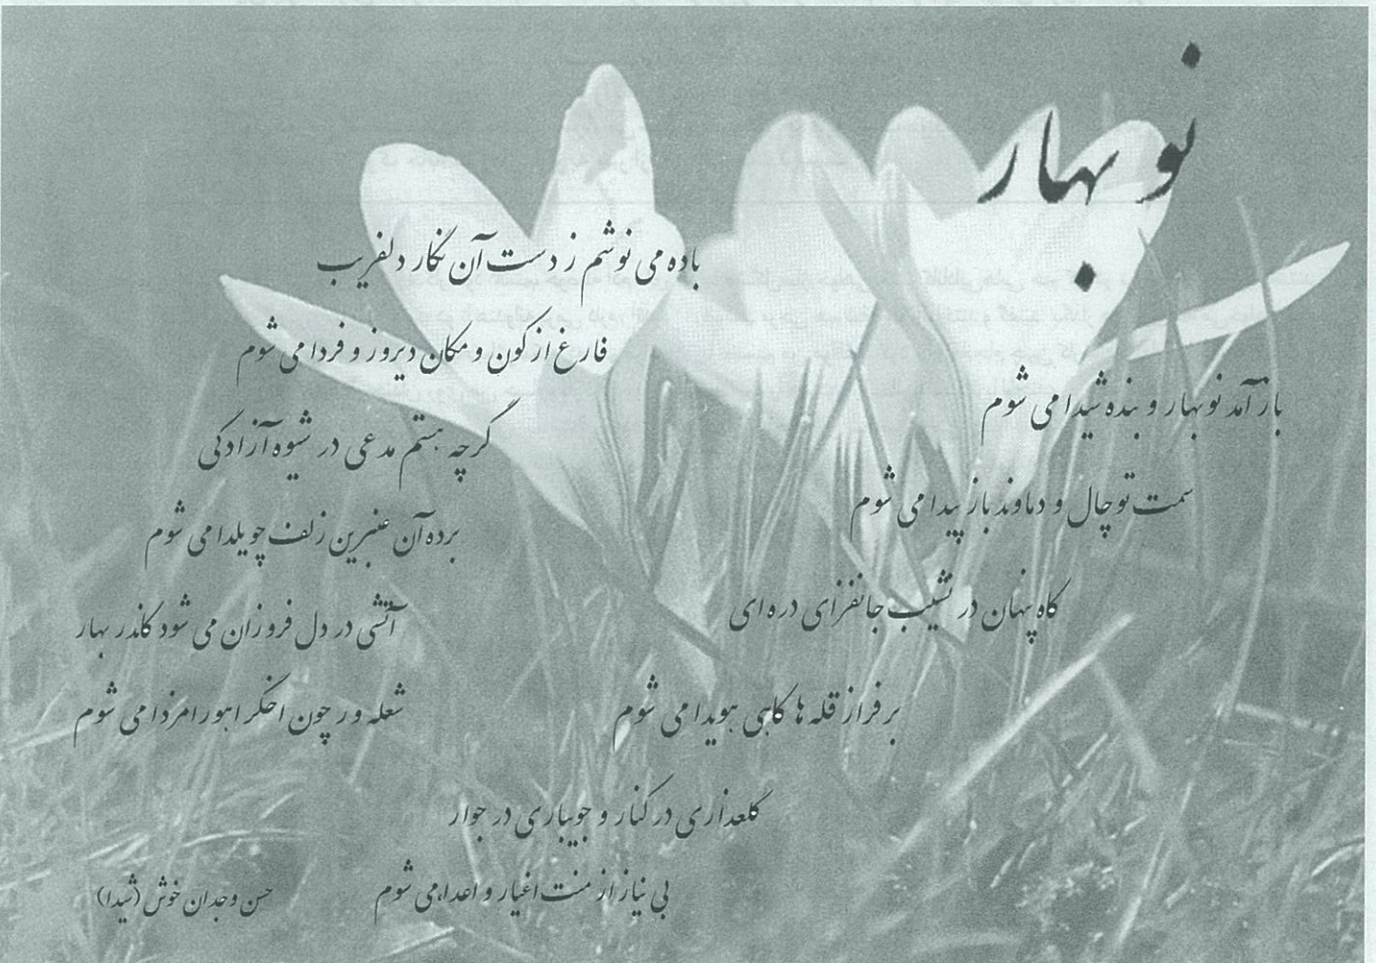 نوبهار
باز آمد نوبهار و بنده شیدا می شوم
سمت توچال و دماوند باز پیدا می شوم
گاه پنهان در نشیب جانفزای دره ای
بر فراز قله ها گاهی هویدا می شوم
گلعذاری در کنار و جویباری در جوار
بی نیاز از منت اغیار و اعدا می شوم
باده می نوشم ز دست آن نگار دلفریب
فارغ از کون و مکان دیروز و فردا می شوم
گرچه هستم مدعی در شیوه آزادگی
برده آن عنبرین زلف چو یلدا می شوم
آتشی در دل فروزان می شود کاندر بهار
شعله ور چون اخگر اهورامزدا می شوم
حسن وجدان خوش (شیدا)